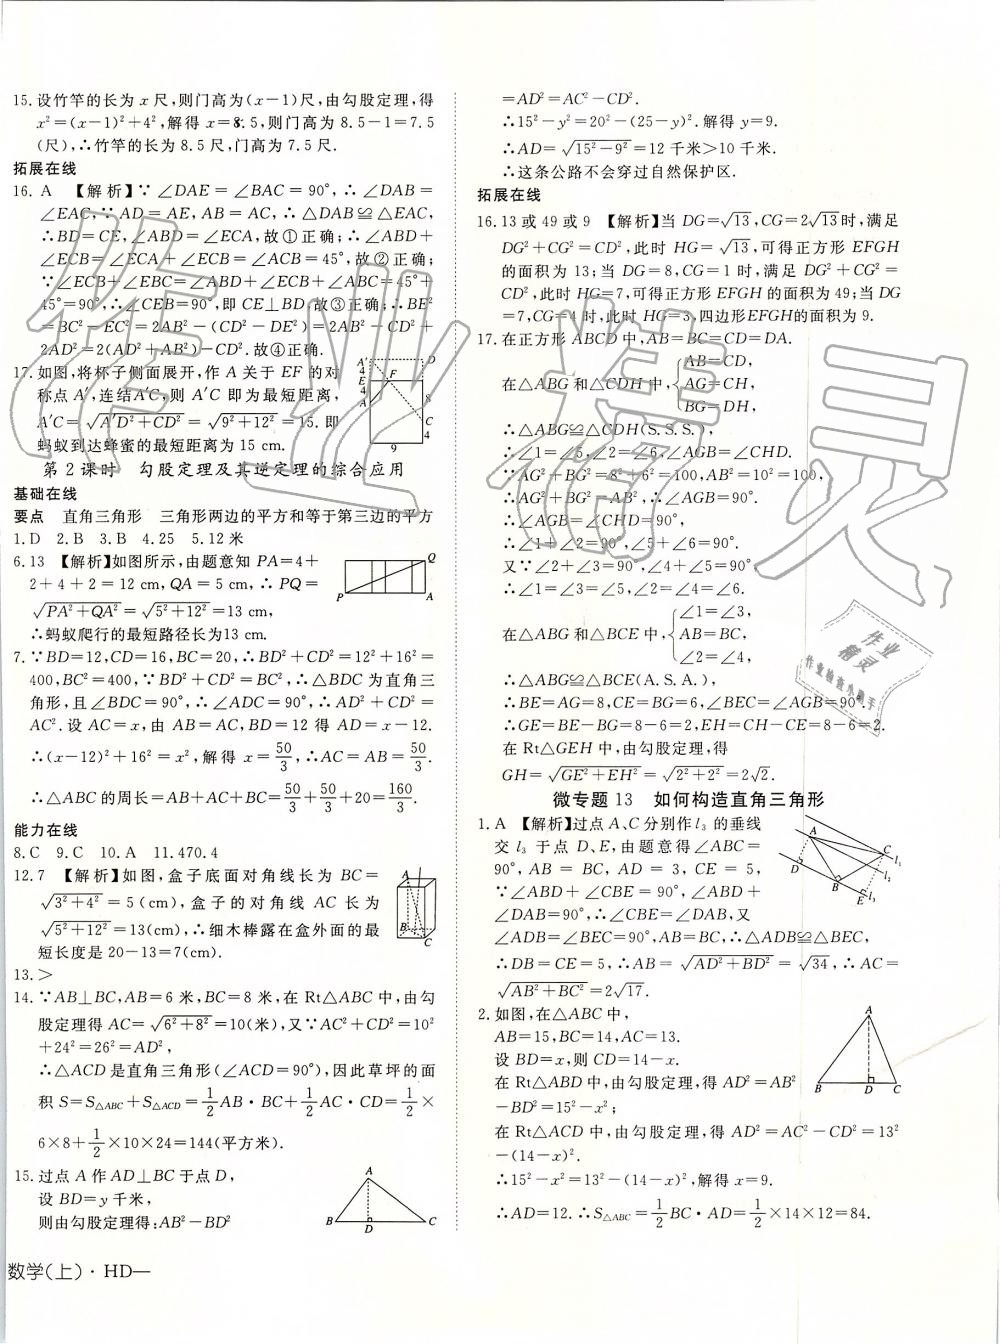 15. 设竹竿的长为 x 尺,则门高为(x−1)尺,由勾股定理,得
x²=(x−1)²+4²,解得 x=8.5,则门高为 8.5−1=7.5
(尺),∴竹竿的长为 8.5 尺,门高为 7.5 尺.
拓展在线
16. A 【解析】∵∠DAE=∠BAC=90°,∴∠DAB=
∠EAC,∵AD=AE,AB=AC,∴△DAB≌△EAC,
∴BD=CE,∠ABD=∠ECA,故①正确;∴∠ABD+
∠ECB=∠ECA+∠ECB=∠ACB=45°,故②正确;
∵∠ECB+∠EBC=∠ABD+∠ECB+∠ABC=45°+
45°=90°,∴∠CEB=90°,即 CE⊥BD 故③正确;∴BE²
=BC²−EC²=2AB²−(CD²−DE²)=2AB²−CD²+
2AD²=2(AD²+AB²)−CD².故④正确.
17. 如图,将杯子侧面展开,作 A 关于 EF 的对
称点 A′,连结A′C,则 A′C 即为最短距离,
A′C=√(A′D²+CD²)=√(9²+12²)=15.即
蚂蚁到达蜂蜜的最短距离为 15 cm.
A′ D
4
F
E
4
A 8
C
4
9
第 2 课时 勾股定理及其逆定理的综合应用
基础在线
要点 直角三角形 三角形两边的平方和等于第三边的平方
1. D 2. B 3. B 4. 25 5. 12 米
6. 13 【解析】如图所示,由题意知 PA=4+
2+4+2=12 cm,QA=5 cm,∴PQ=
√(PA²+QA²)=√(5²+12²)=13 cm,
∴蚂蚁爬行的最短路径长为13 cm.
Q
P A
7. ∵BD=12,CD=16,BC=20,∴BD²+CD²=12²+16²=
400,BC²=400,∵BD²+CD²=BC²,∴△BDC 为直角三
角形,且∠BDC=90°,∴∠ADC=90°,∴AD²+CD²=
AC².设 AC=x,由 AB=AC,BD=12 得 AD=x−12.
∴(x−12)²+16²=x²,解得 x=50/3,∴AC=AB=50/3.
∴△ABC 的周长=AB+AC+BC=50/3+50/3+20=160/3.
能力在线
8. C 9. C 10. A 11. 470.4
12. 7 【解析】如图,盒子底面对角线长为 BC=
√(3²+4²)=5(cm),盒子的对角线 AC 长为
√(5²+12²)=13(cm),∴细木棒露在盒外面的最
短长度是 20−13=7(cm).
A
B
C
13. >
14. ∵AB⊥BC,AB=6 米,BC=8 米,在 Rt△ABC 中,由勾
股定理得 AC=√(6²+8²)=10(米),又∵AC²+CD²=10²
+24²=26²=AD²,
∴△ACD 是直角三角形(∠ACD=90°),因此草坪的面
积 S=S△ABC+S△ACD=1/2AB·BC+1/2AC·CD=1/2×
6×8+1/2×10×24=144(平方米).
15. 过点 A 作 AD⊥BC 于点 D,
设 BD=y 千米,
则由勾股定理得:AB²−BD²
A
B D C
数学(上)·HD—
=AD²=AC²−CD².
∴15²−y²=20²−(25−y)².解得 y=9.
∴AD=√(15²−9²)=12 千米>10 千米.
∴这条公路不会穿过自然保护区.
拓展在线
16. 13 或 49 或 9 【解析】当 DG=√13,CG=2√13时,满足
DG²+CG²=CD²,此时 HG=√13,可得正方形 EFGH
的面积为 13;当 DG=8,CG=1 时,满足 DG²+CG²=
CD²,此时 HG=7,可得正方形 EFGH 的面积为 49;当 DG
=7,CG=4 时,此时 HG=3,四边形EFGH的面积为 9.
17. 在正方形 ABCD 中,AB=BC=CD=DA.
在△ABG 和△CDH 中,{AB=CD,
AG=CH,
BG=DH,
∴△ABG≌△CDH(S.S.S.),
∴∠1=∠5,∠2=∠6,∠AGB=∠CHD.
∵AG²+BG²=8²+6²=100,AB²=10²=100,
∴AG²+BG²=AB²,∴∠AGB=90°.
∴∠AGB=∠CHD=90°,
∴∠1+∠2=90°,∠5+∠6=90°.
又∵∠2+∠3=90°,∠4+∠5=90°,
∴∠1=∠3=∠5,∠2=∠4=∠6.
在△ABG 和△BCE 中,{∠1=∠3,
AB=BC,
∠2=∠4,
∴△ABG≌△BCE(A.S.A.),
∴BE=AG=8,CE=BG=6,∠BEC=∠AGB=90°.
∴GE=BE−BG=8−6=2,EH=CH−CE=8−6=2.
在 Rt△GEH 中,由勾股定理,得
GH=√(GE²+EH²)=√(2²+2²)=2√2.
微专题 13 如何构造直角三角形
1. A 【解析】过点 A、C 分别作 l₃ 的垂线
交 l₃ 于点 D、E,由题意得∠ABC=
90°,AB=BC,AD=3,CE=5,
∵∠ABD+∠CBE=90°,∠ABD+
∠DAB=90°,∴∠CBE=∠DAB,又
∠ADB=∠BEC=90°,AB=BC,∴△ADB≌△BEC,
∴DB=CE=5,∴AB=√(AD²+BD²)=√34,∴AC=
√(AB²+BC²)=2√17.
A
C
l₁
D
l₂
B
E l₃
2. 如图,在△ABC 中,
AB=15,BC=14,AC=13.
设 BD=x,则 CD=14−x.
在 Rt△ABD 中,由勾股定理,得 AD²=AB²
−BD²=15²−x²;
在 Rt△ACD 中,由勾股定理,得 AD²=AC²−CD²=13²
−(14−x)².
∴15²−x²=13²−(14−x)²,解得 x=9.
∴AD=12.∴S△ABC=1/2BC·AD=1/2×14×12=84.
A
B D C
作业精灵
作业
精灵
作业检查小助手